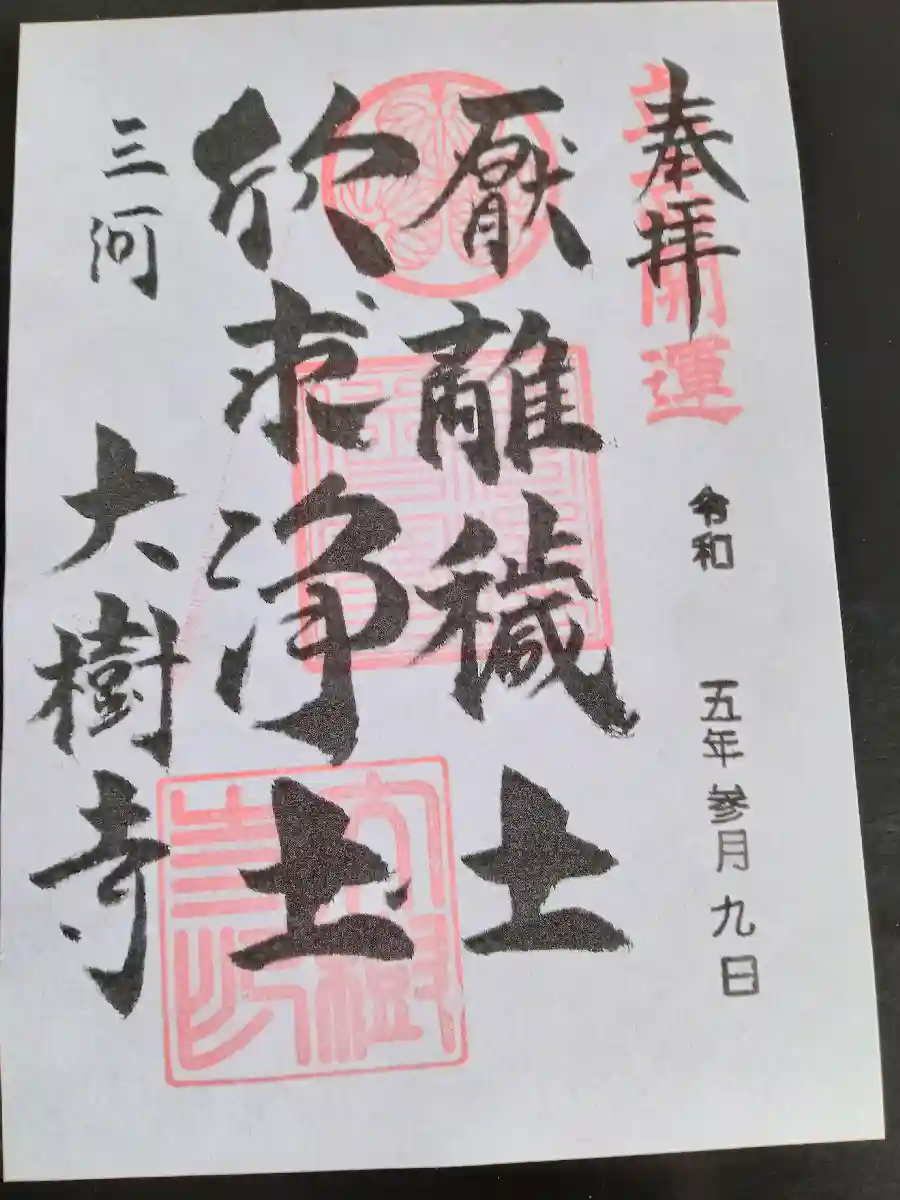 奉拝
開運
令和 五年 参月 九日
厭離穢土
欣求浄土
三河 大樹寺
大樹寺印